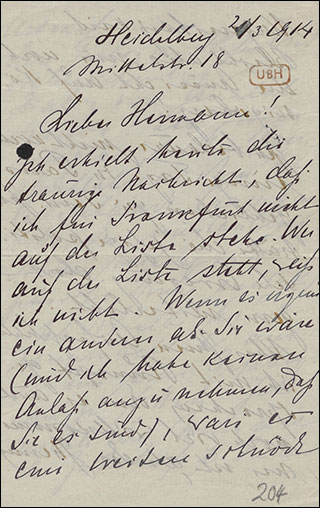 Heidelberg 21/3 1914
Mittelstr. 18
UBH
Lieber Hermann!
Ich erhielt heute die
traurige Nachricht, daß
ich für Frankfurt nicht
auf der Liste stehe. Wer
auf der Liste steht, weiß
ich nicht. Wenn es irgend
ein anderer als Sie wäre
(und ich habe keinen
Anlaß anzunehmen, daß
Sie es sind), wäre es
ein
204